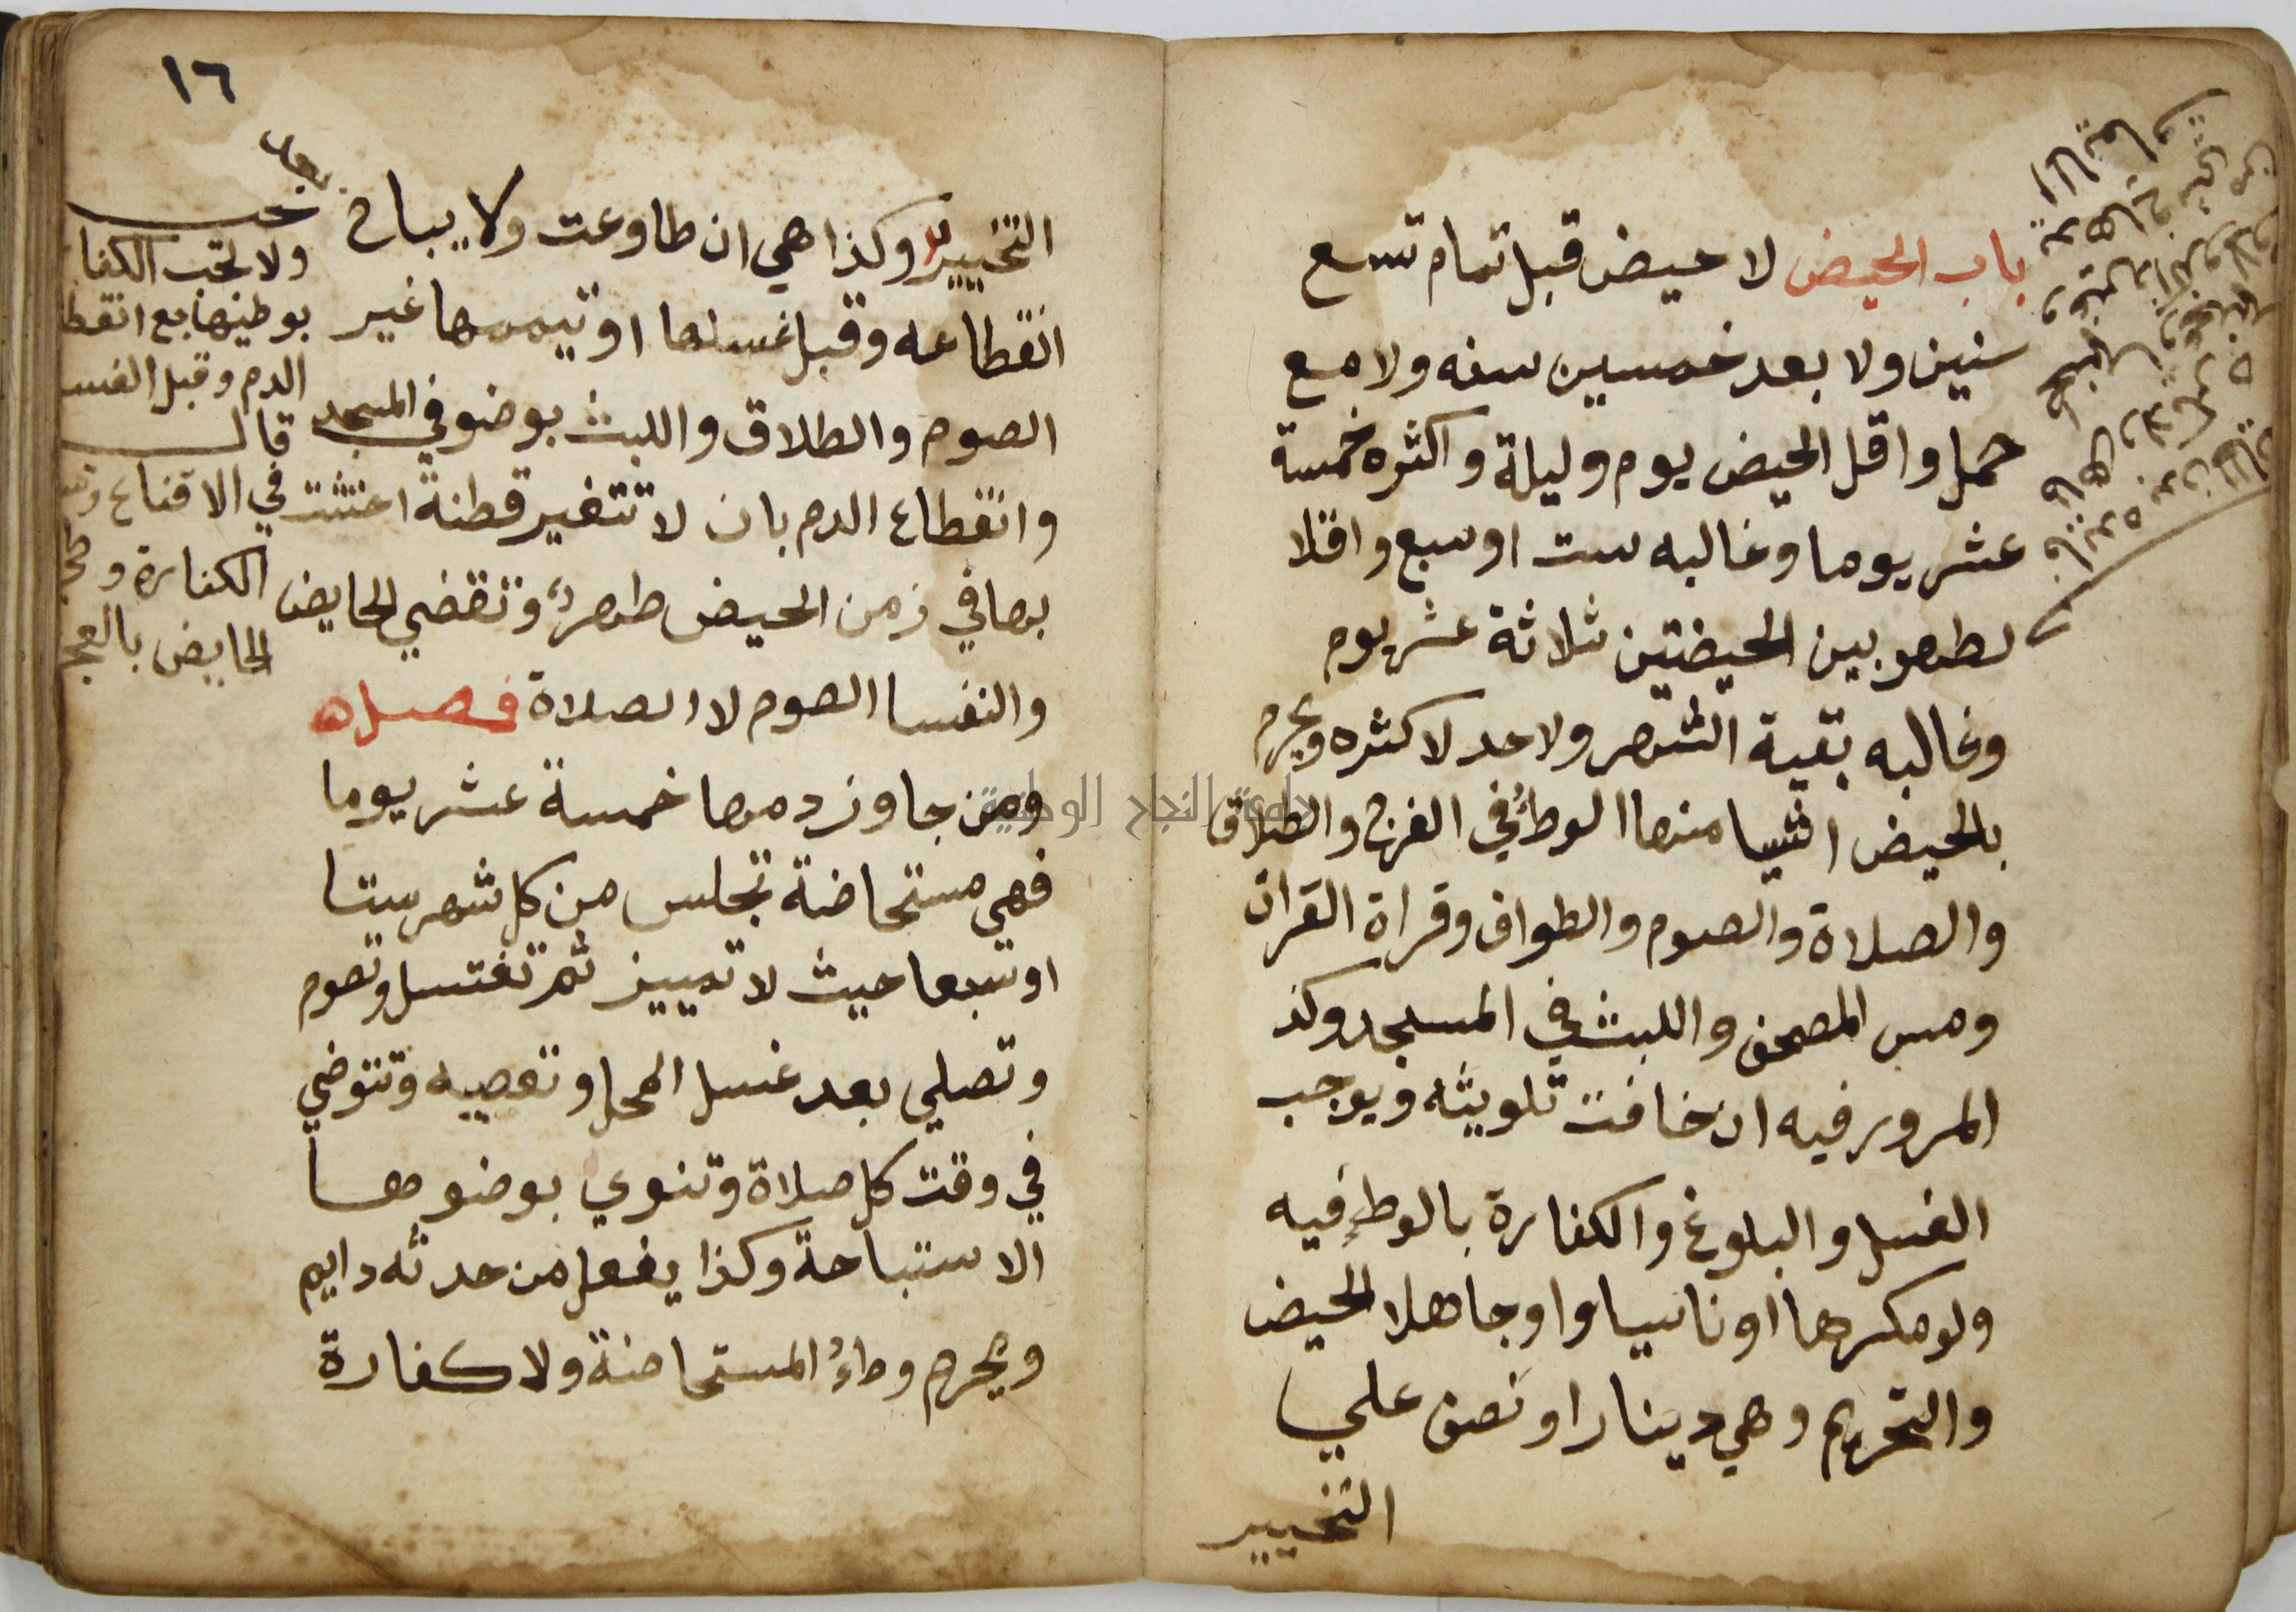 باب الحيض لا حيض قبل تمام تسع
سنين ولا بعد خمسين سنه ولا مع
حمل واقل الحيض يوم وليلة واكثره خمسة
عشر يوما وغالبه ست او سبع واقلا
لطهر بين الحيضتين ثلاثة عشر يوم
وغالبه بقية الشهر ولا حد لاكثره ويحرم
بالحيض اشيا منها الوطئ في الفرج والطلاق
والصلاة والصوم والطواف وقراة القران
ومس المصحف واللبث في المسجد وكذ
المرور فيه ان خافت تلويثه ويوجب
الغسل والبلوغ والكفارة بالوطء فيه
ولو مكرها او ناسيا او جاهلا الحيض
والتحريم وهي دينار او نصف علي
التخيير
١٦
التخيير وكذا هي ان طاوعت ولا يباح
انقطاعه وقبل غسلها او تيممها غير
الصوم والطلاق واللبث بوضو في المسجد
وانقطاع الدم بان لا تتغير قطنة احتشت
بها في زمن الحيض طهر وتقضي الحايض
والنفسا الصوم لا الصلاة فصل
ومن جاوز دمها خمسة عشر يوما
فهي مستحاضة تجلس من كل شهر ستا
او سبعا حيث لا تمييز ثم تغتسل وتصوم
وتصلي بعد غسل المحل وتعصيبه وتتوضي
في وقت كل صلاة وتنوي بوضوها
الاستباحة وكذا يفعل من حدثه دايم
ويحرم وطء المستحاضة ولا كفارة
ولا تجب الكفا
بوطيها بع انقطا
الدم وقبل الغسـ
قال
في الاقناع
الكفارة
الحايض
جامعة النجاح الوطنية